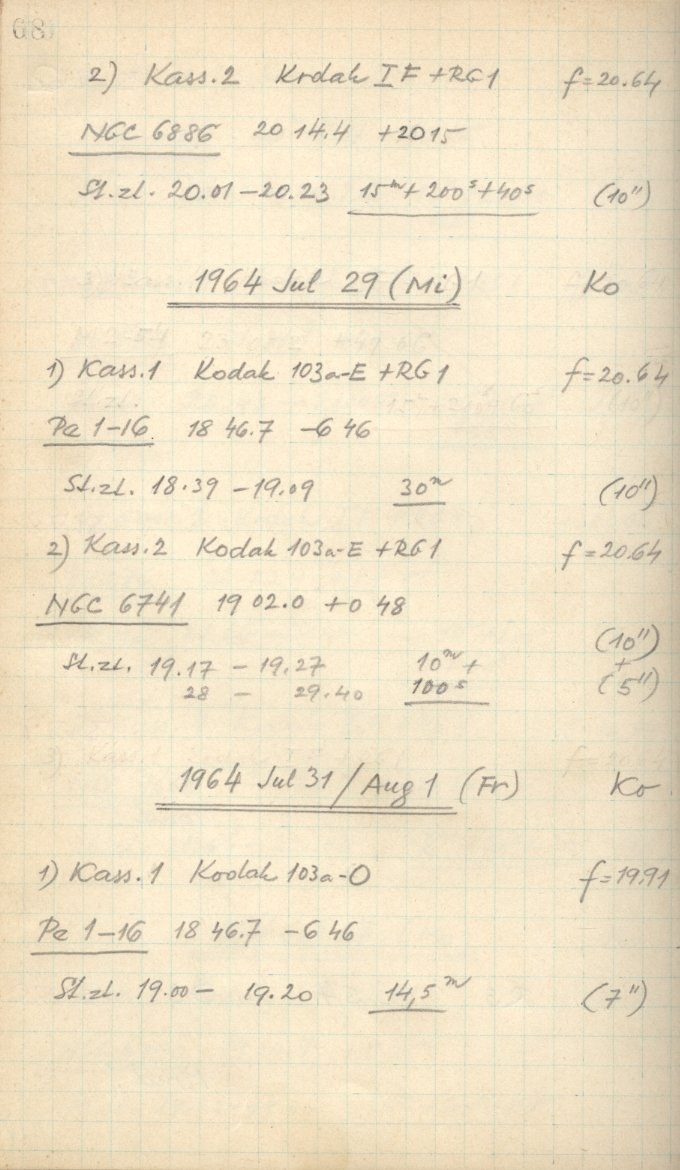 68
2) Kass. 2 Kodak I F + RG1 f = 20.64
NGC 6886 20 14.4 +20 15
St.zt. 20.01 – 20.23 15ᵐ + 200ˢ + 40ˢ (10")
1964 Jul 29 (Mi) Ko
1) Kass. 1 Kodak 103a-E + RG1 f = 20.64
Pe 1–16 18 46.7 –6 46
St.zt. 18.39 – 19.09 30ᵐ (10")
2) Kass. 2 Kodak 103a-E + RG1 f = 20.64
NGC 6741 19 02.0 +0 48
St.zt. 19.17 – 19.27 10ᵐ + (10") +
28 – 29.40 100ˢ (5")
1964 Jul 31 / Aug 1 (Fr) Ko
1) Kass. 1 Kodak 103a-O f = 19.91
Pe 1–16 18 46.7 –6 46
St.zt. 19.00 – 19.20 14,5ᵐ (7")